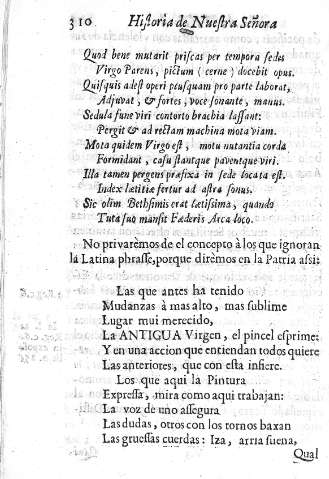 310 Historia de Nuestra Señora
Quod bene mutarit priscas per tempora sedes
Virgo Parens, pictum (cerne) docebit opus.
Quisquis adest operi pcusquam pro parte laborat,
Adjuvat, & fortes, voce sonante, manus.
Sedula fune viri contorto brachia lassant:
Pergit & ad rectam machina mota viam.
Mota quidem Virgo est, motu nutantia corda
Formidant, casu stantque paventque viri.
Illa tamen pergens præfixa in sede locata est.
Index lætitiæ fertur ad astra sonus.
Sic olim Bethsimis erat lætissima, quando
Tuta suo mansit Fæderis Arca loco.
No privarèmos de el concepto à los que ignoran
la Latina phrasse, porque dirèmos en la Patria assi:
Las que antes ha tenido
Mudanzas à mas alto, mas sublime
Lugar mui merecido,
La ANTIGUA Virgen, el pincel esprime:
Y en una accion que entiendan todos quiere
Las anteriores, que con esta infiere.
Los que aqui la Pintura
Expressa, mira como aqui trabajan:
La voz de uno assegura
Las dudas, otros con los tornos baxan
Las gruessas cuerdas: Iza, arria suena,
Qual